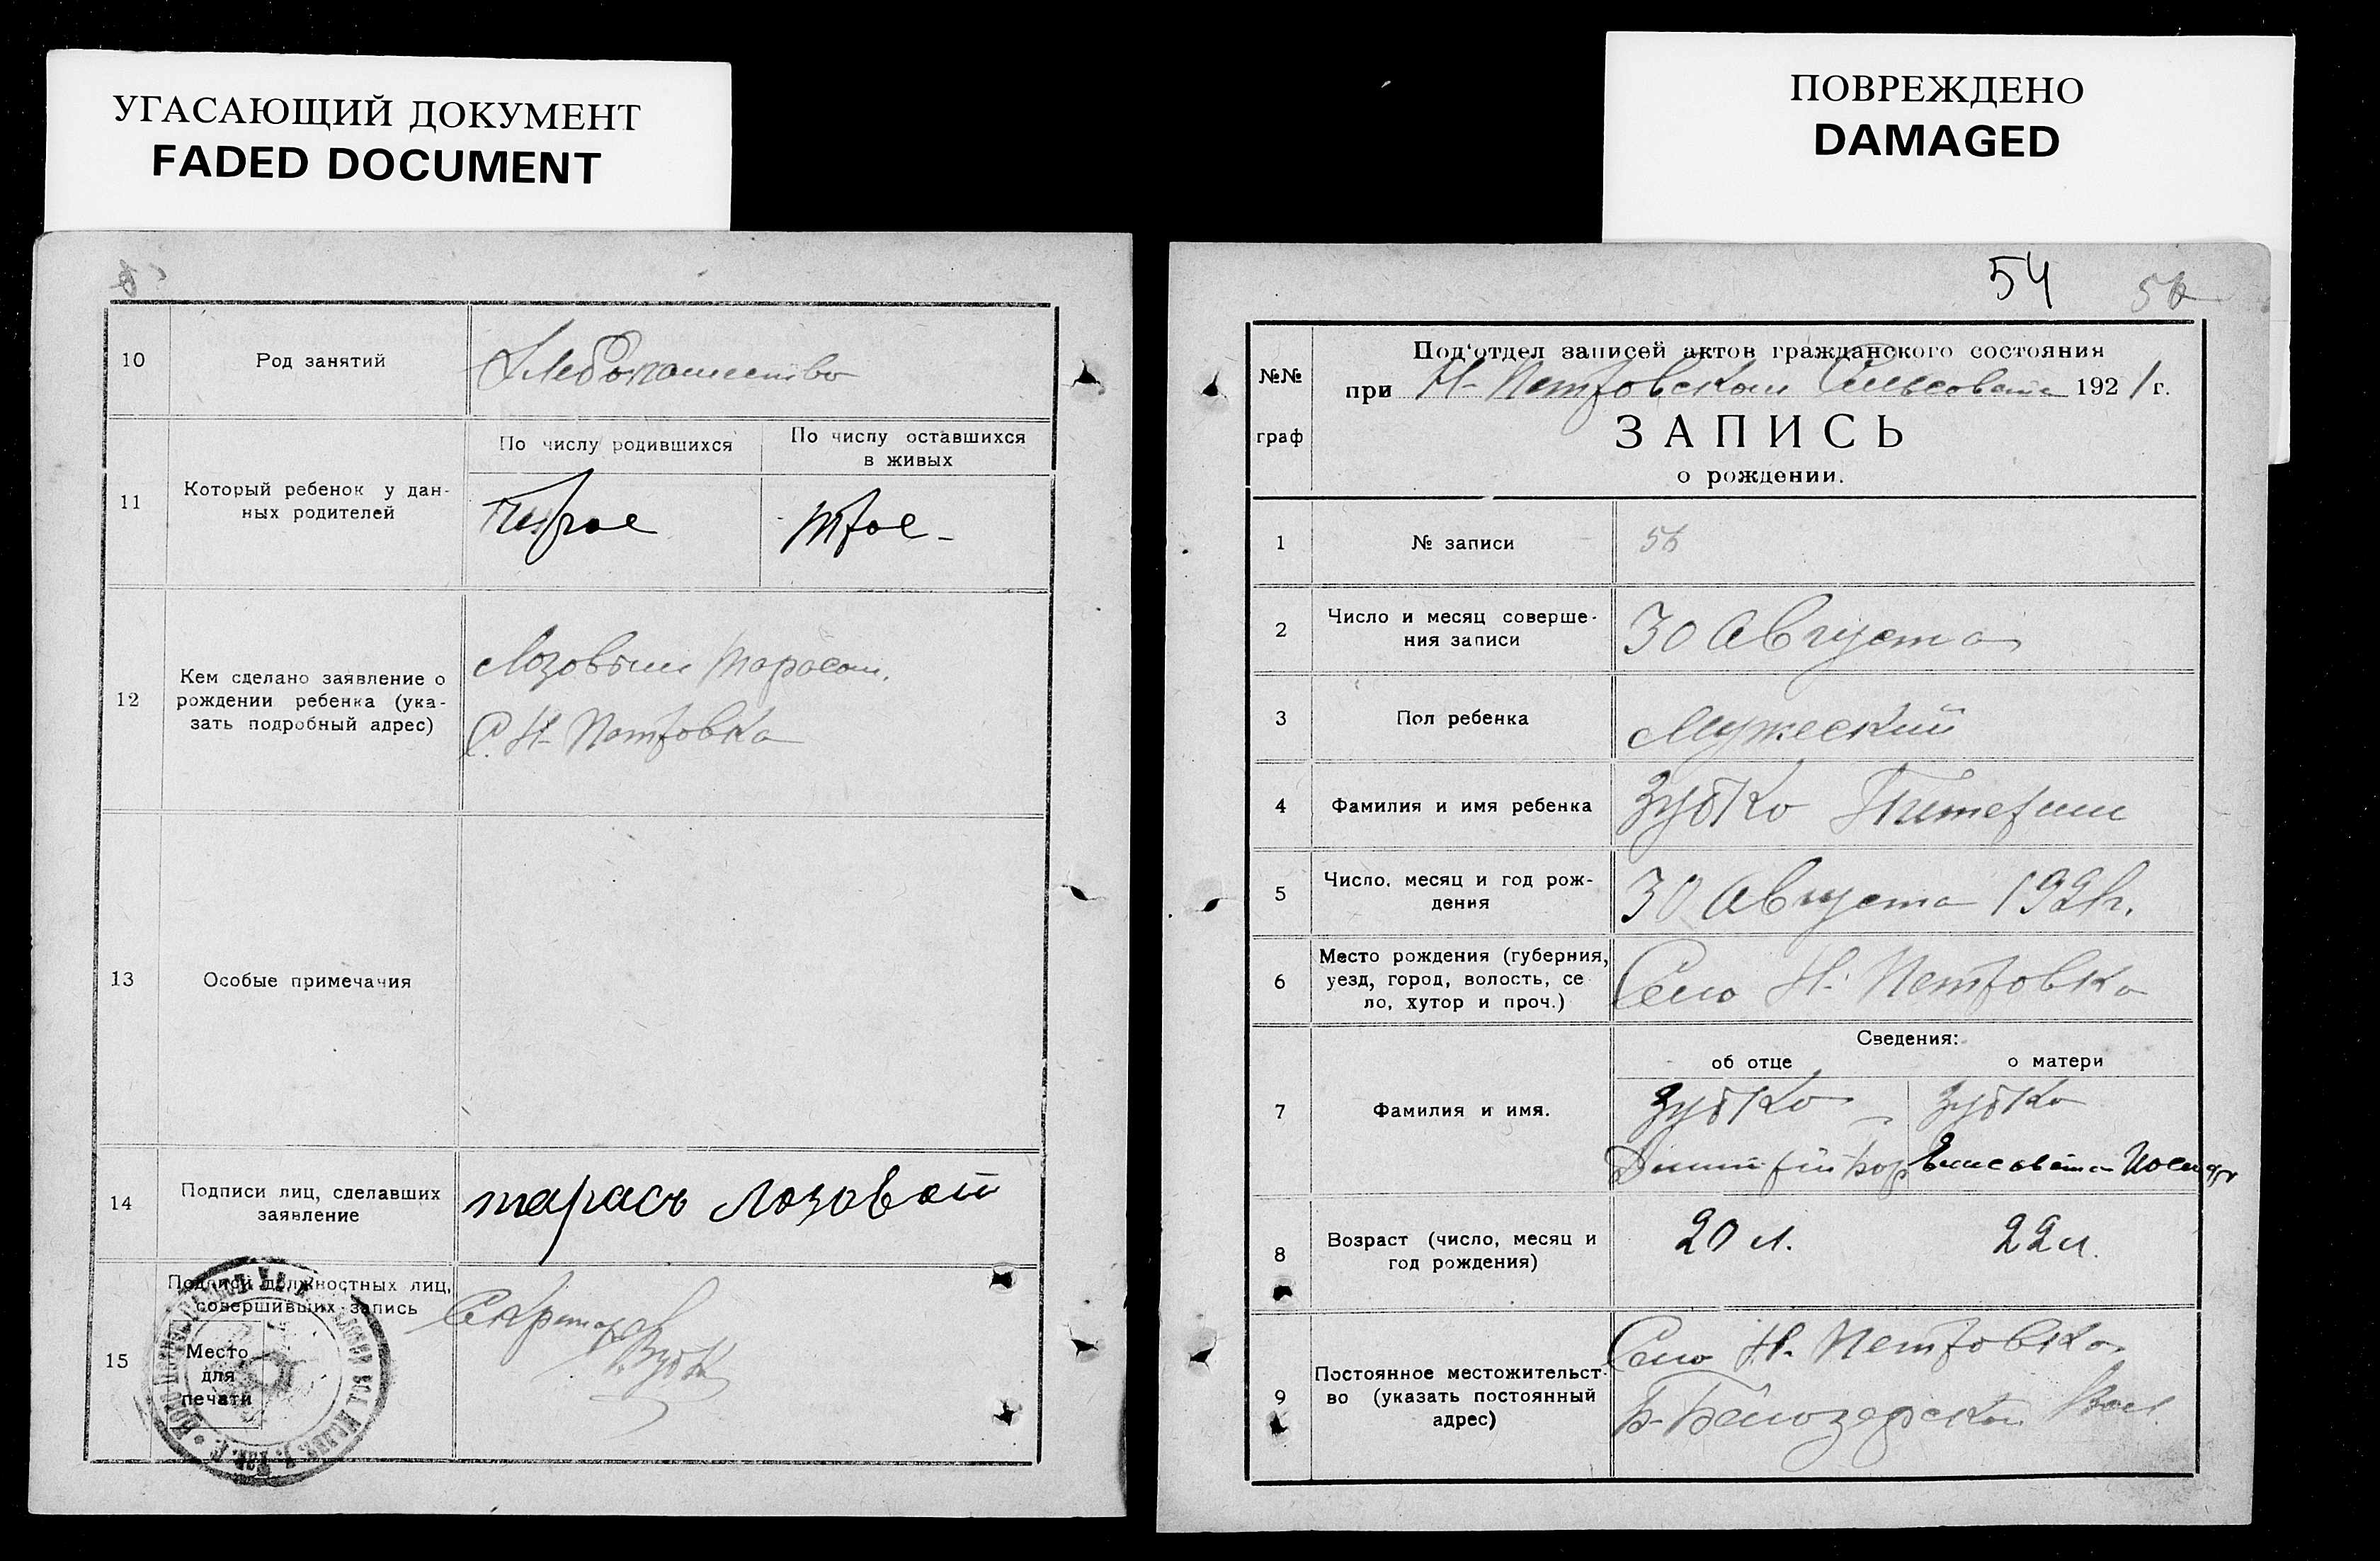 УГАСАЮЩИЙ ДОКУМЕНТ
FADED DOCUMENT
10 Род занятий Хлебопашество
11 Который ребенок у дан-
ных родителей
По числу родившихся
По числу оставшихся
в живых
трое
12 Кем сделано заявление о
рождении ребенка (ука-
зать подробный адрес)
Лозовым Тарасом.
С. Н-Петровка
13 Особые примечания
14 Подписи лиц, сделавших
заявление
тарасъ Лозовой
15 Подписи должностных лиц,
совершивших запись
Место
для
печати
Секретарь
ПОВРЕЖДЕНО
DAMAGED
54 56
№№
граф
Под‘отдел записей актов гражданского состояния
при Н-Петровском Сельсовете 1921 г.
ЗАПИСЬ
о рождении.
1 № записи 56
2 Число и месяц соверше-
ния записи
30 Августа
3 Пол ребенка Мужеский
4 Фамилия и имя ребенка Зубко
5 Число, месяц и год рож-
дения
30 Августа 1921г.
6 Место рождения (губерния,
уезд, город, волость, се
ло, хутор и проч.)
Село Н. Петровка
Сведения:
об отце о матери
7 Фамилия и имя.
Зубко Зубко
Димитрий Елисавета
8 Возраст (число, месяц и
год рождения)
20 л. 22 л.
9 Постоянное местожительст-
во (указать постоянный
адрес)
Село Н. Петровка
Б-Белозерской Вол.